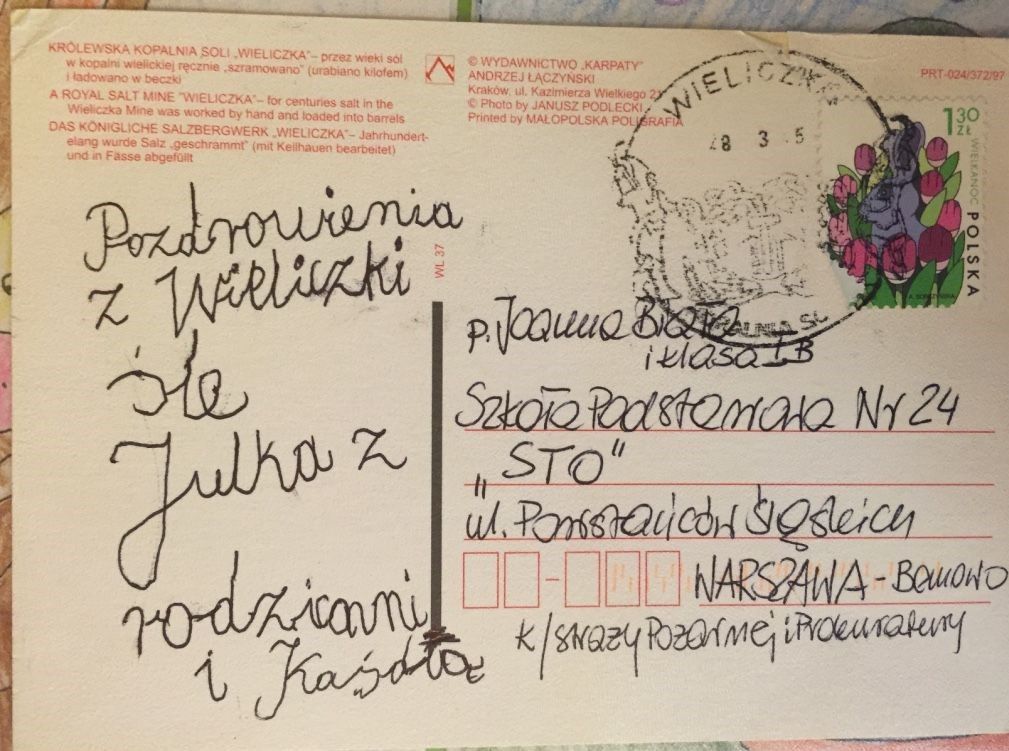 KRÓLEWSKA KOPALNIA SOLI „WIELICZKA”– przez wieki sól
w kopalni wielickiej ręcznie „szramowano” (urabiano kilofem)
i ładowano w beczki
A ROYAL SALT MINE "WIELICZKA"– for centuries salt in the
Wieliczka Mine was worked by hand and loaded into barrels
DAS KÖNIGLICHE SALZBERGWERK „WIELICZKA”– Jahrhundert-
elang wurde Salz „geschrammt” (mit Keilhauen bearbeitet)
und in Fässe abgefüllt
© WYDAWNICTWO „KARPATY”
ANDRZEJ ŁĄCZYŃSKI
Kraków, ul. Kazimierza Wielkiego
© Photo by JANUSZ PODLECKI
Printed by MAŁOPOLSKA POLIGRAFIA
PRT-024/372/97
WIELICZKA
28 3
1,30
ZŁ
WIELKANOC
POLSKA
WL 37
Pozdrowienia
z Wieliczki
śle
Julka z
rodzicami
i
p. Joanna Biała
i klasa I B
Szkoła Podstawowa Nr 24
„STO”
ul. Powstańców Śląskich
WARSZAWA - Bemowo
k/ straży Pożarnej i Prokuratury